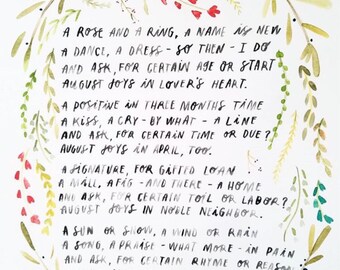 A ROSE AND A RING, A NAME IS NEW
A DANCE, A DRESS - SO THEN - I DO
AND ASK, FOR CERTAIN AGE OR START
AUGUST JOYS IN LOVER'S HEART.
A POSITIVE IN THREE MONTHS TIME
A KISS, A CRY - BY WHAT - A LINE
AND ASK, FOR CERTAIN TIME OR DUE?
AUGUST JOYS IN APRIL, TOO.
A SIGNATURE, FOR GIFTED LOAN
A MILL, A FIG - AND THERE - A HOME
AND ASK, FOR CERTAIN TOIL OR LABOR?
AUGUST JOYS IN NOBLE NEIGHBOR.
A SUN OR SNOW, A WIND OR RAIN
A SONG, A PRAISE - WHAT MORE - IN PAIN
AND ASK, FOR CERTAIN RHYME OR REASON